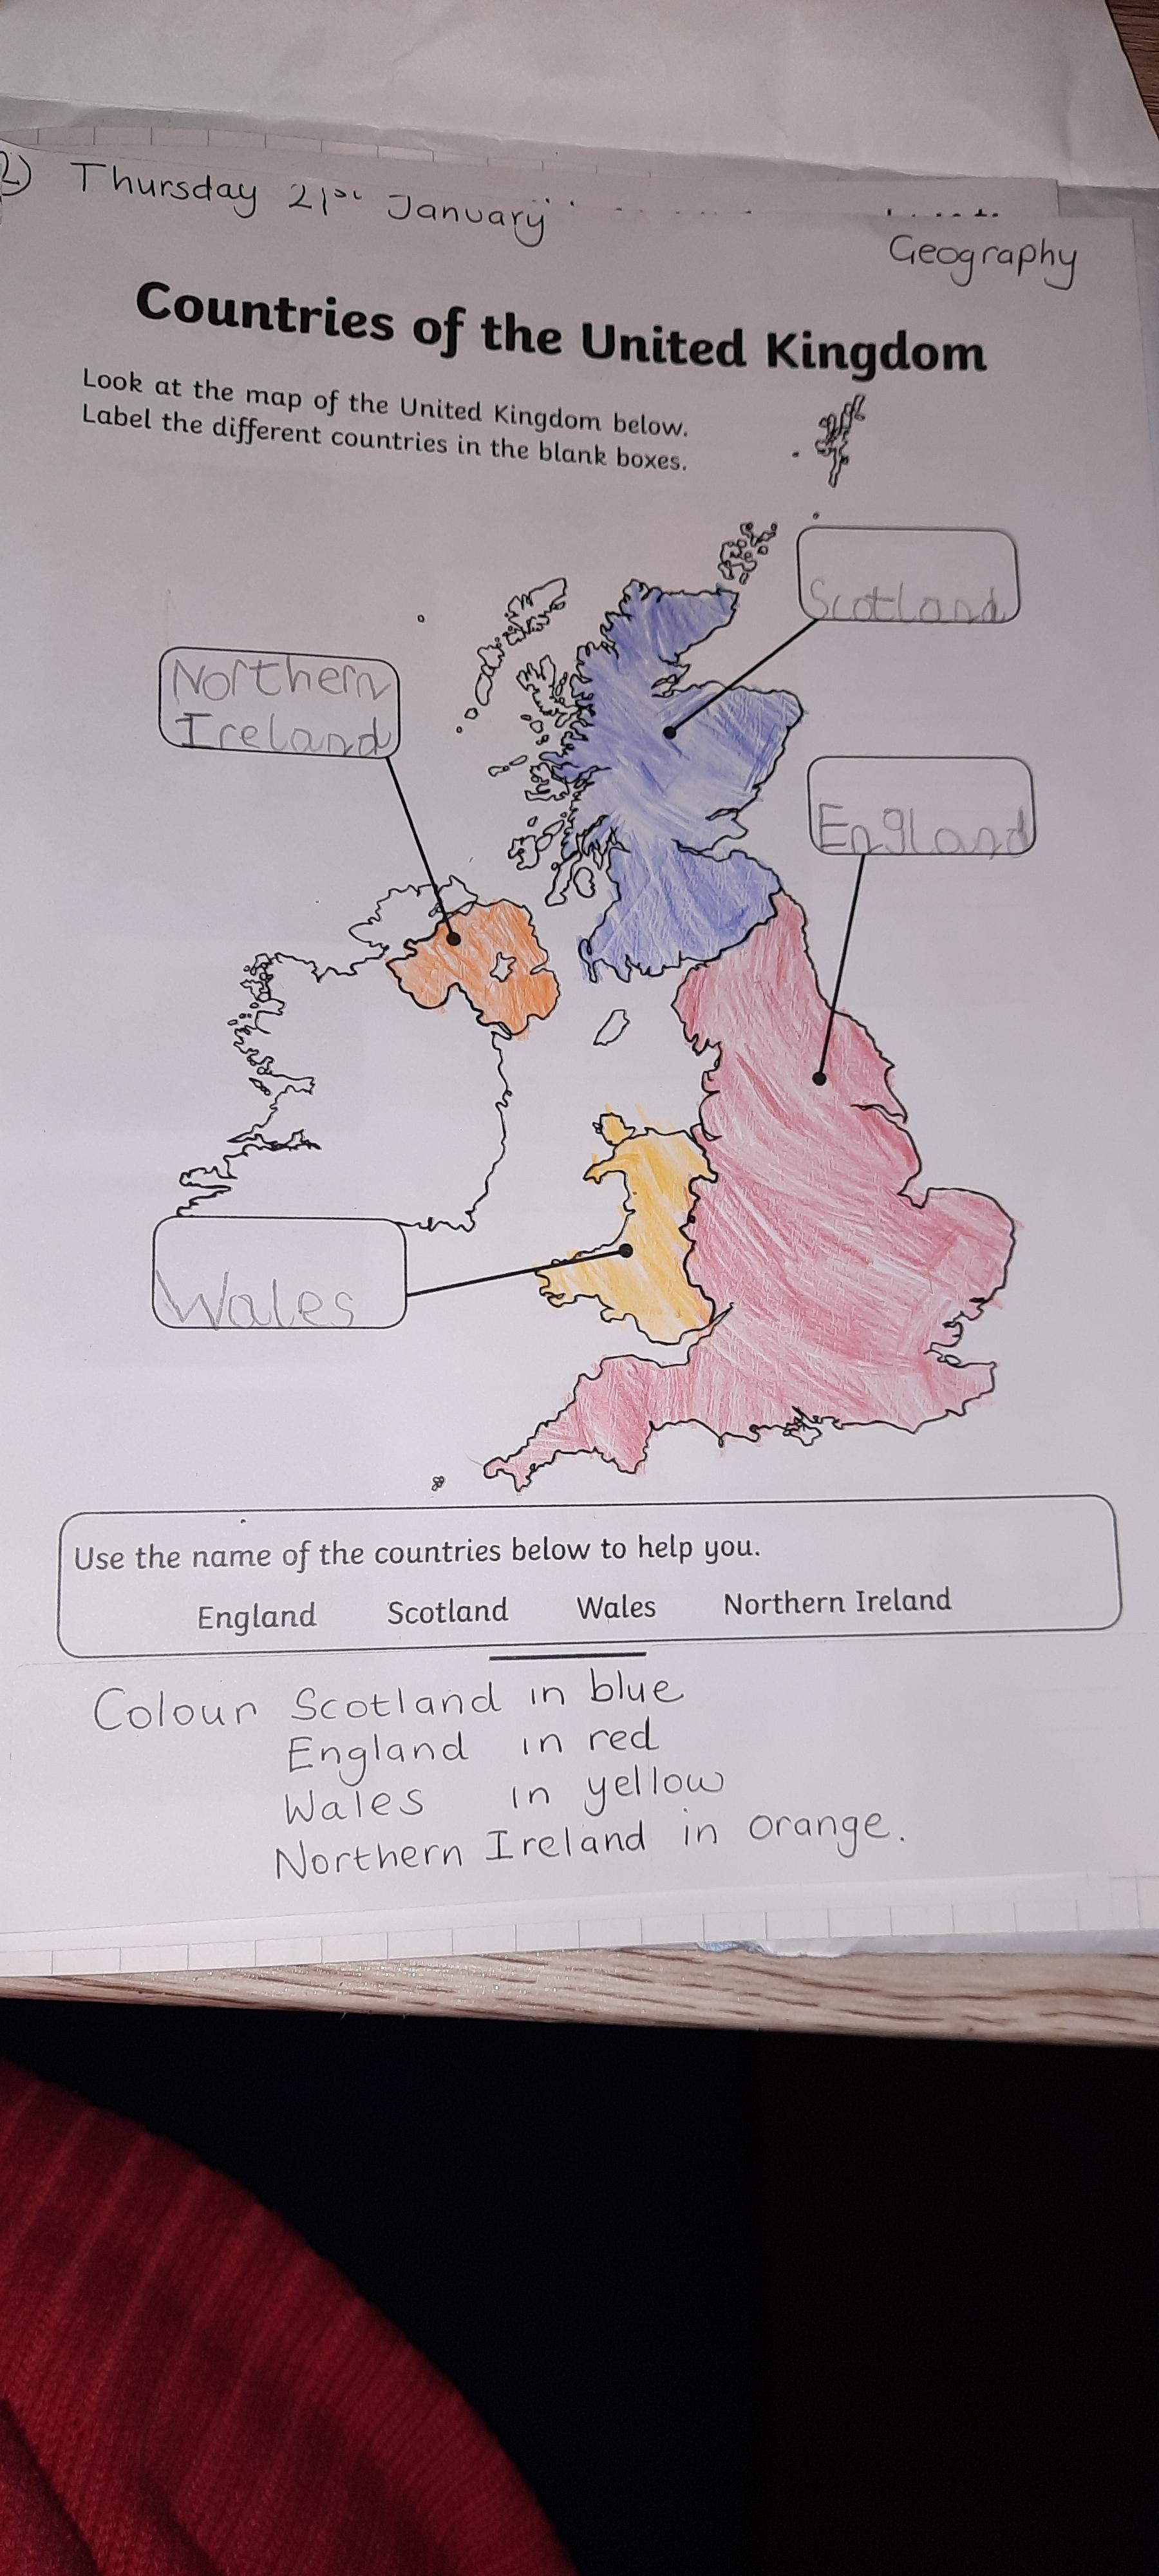 2) Thursday 21st January
Geography
Countries of the United Kingdom
Look at the map of the United Kingdom below.
Label the different countries in the blank boxes.
Scotland
Northern
Ireland
England
Wales
Use the name of the countries below to help you.
England Scotland Wales Northern Ireland
Colour Scotland in blue
England in red
Wales in yellow
Northern Ireland in orange.